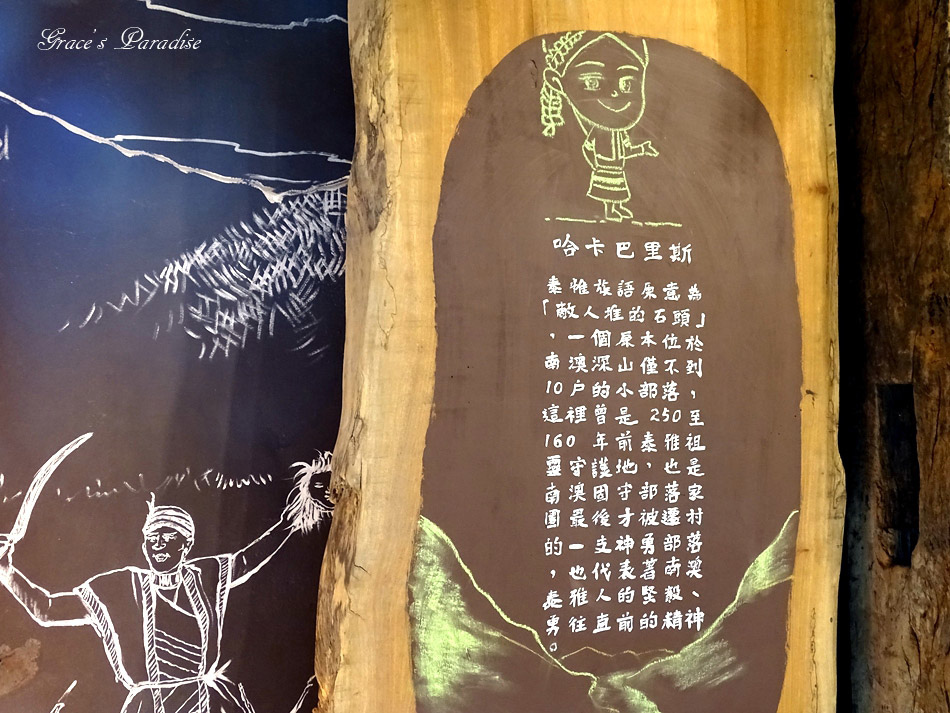 Grace's Paradise
哈卡巴里斯
泰雅族語原意為
「敵人堆的石頭」
，一個原本位於
南澳深山僅不到
10戶的小部落，
這裡曾是 250至
160 年前泰雅祖
靈守護地，也是
南澳固守部落家
園最後才被遷村
的一支神勇部落
，也代表著南澳
泰雅人的堅毅、
勇往直前的精神
。